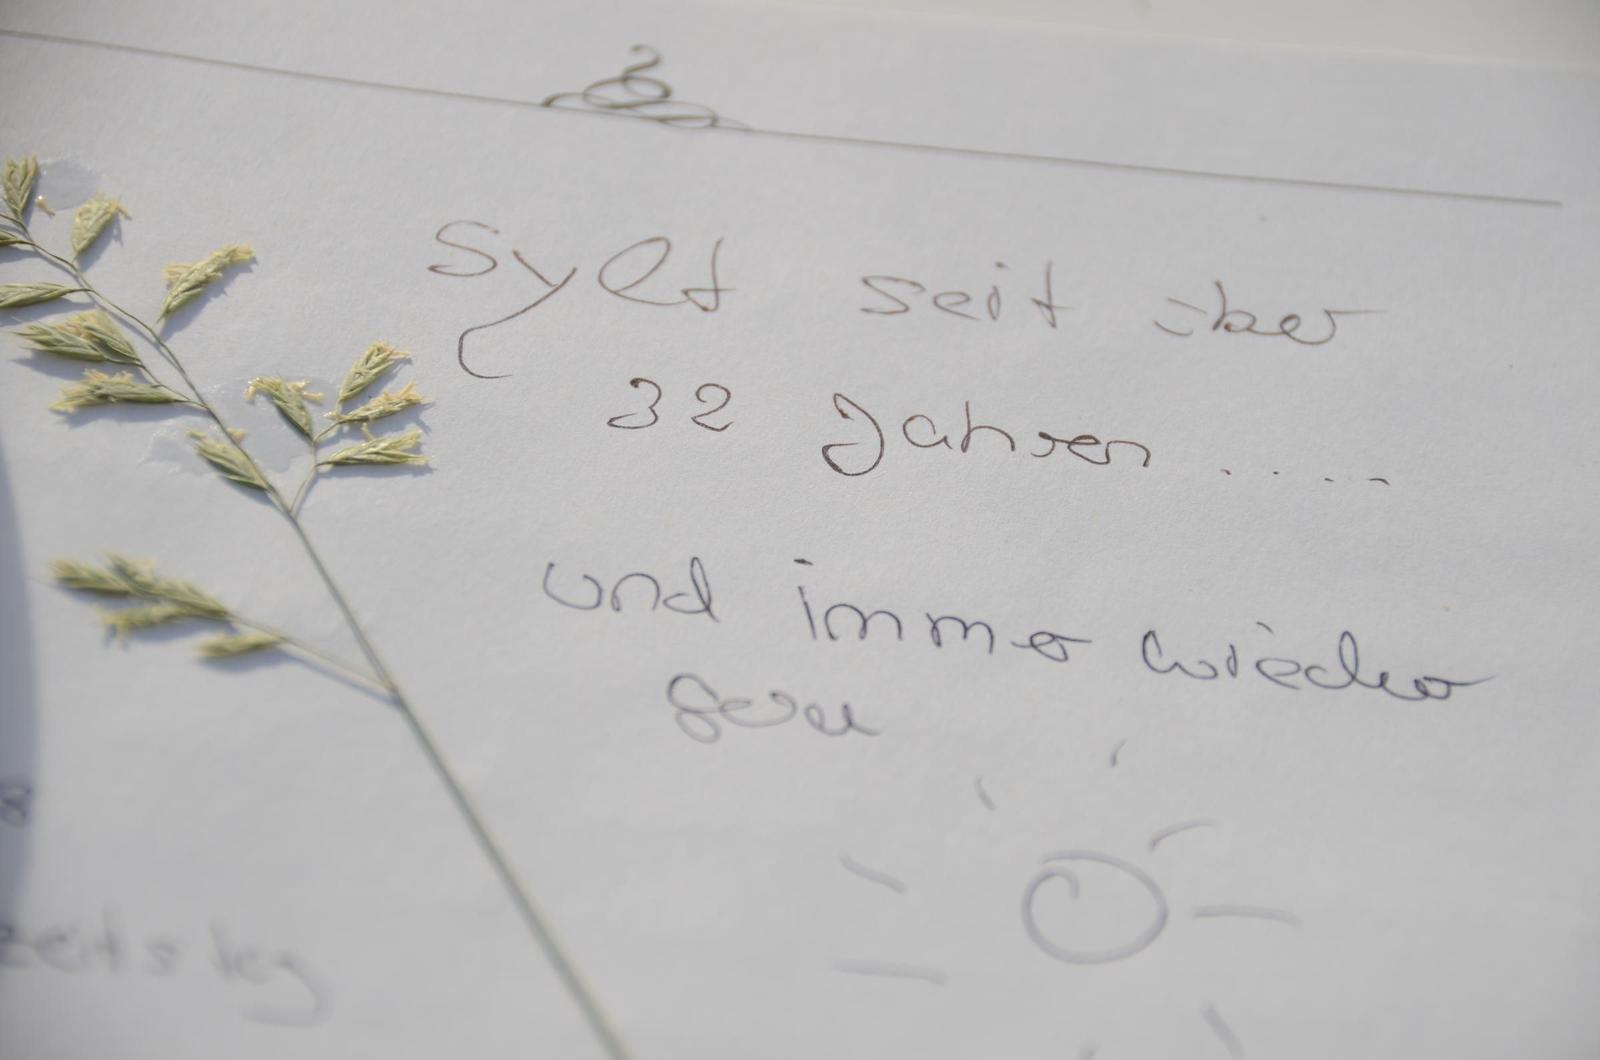 Sylt seit über
32 Jahren .....
und immer wieder
gern
8
zeitsleg